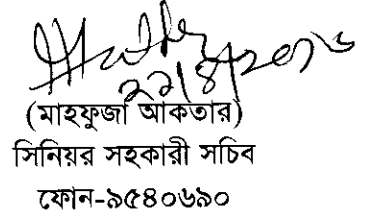 ২১/৪/২০১৬
(মাহফুজা আকতার)
সিনিয়র সহকারী সচিব
ফোন-৯৫৪০৬৯০